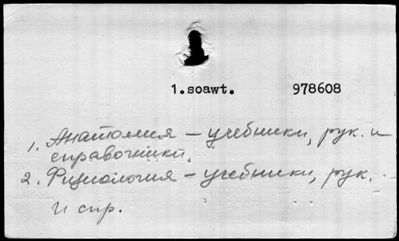 1.soawt. 978608
1. Анатомия – учебники, рук. и
справочники.
2. Физиология – учебники, рук.
и спр.